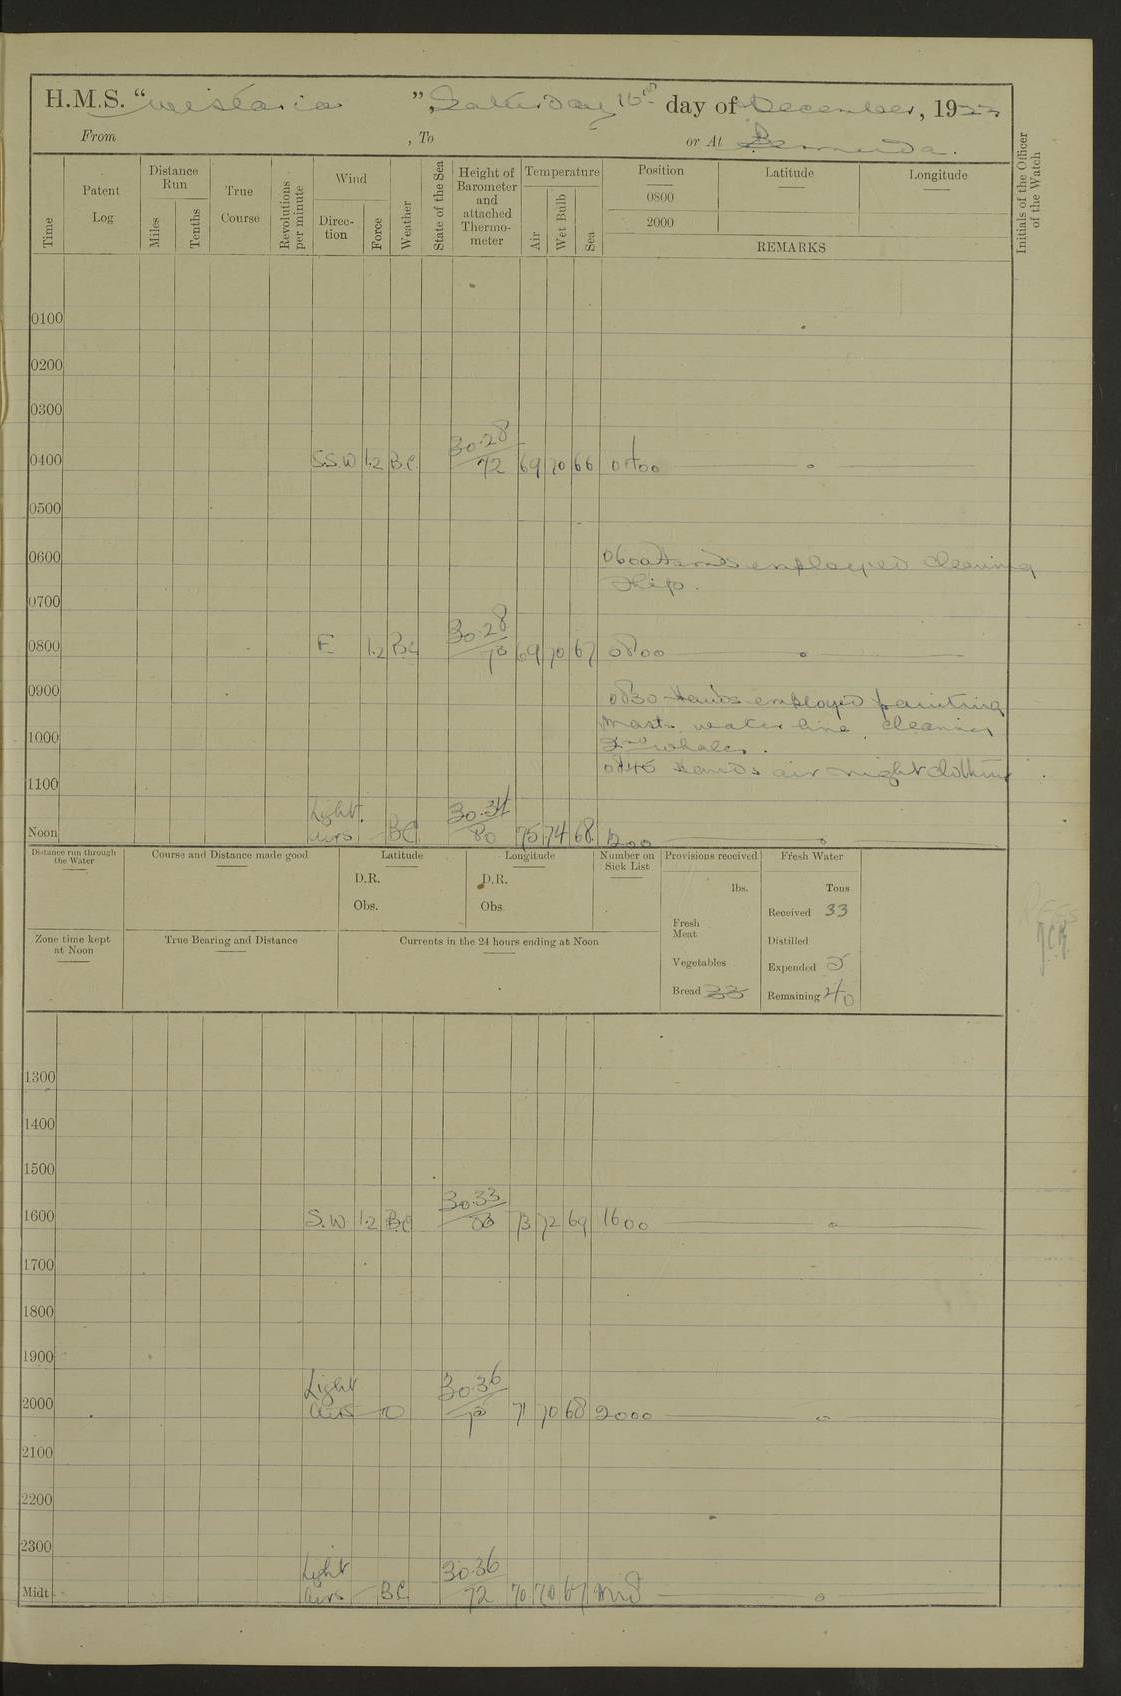 H.M.S. "Wistaria", Saturday 16th day of December, 1922
From , To or At Bermuda.
Time
Patent Log
Distance Run
Miles
Tenths
True Course
Revolutions per minute
Wind
Direction
Force
Weather
State of the Sea
Height of Barometer and attached Thermometer
Temperature
Air
Wet Bulb
Sea
Position
0800
2000
Latitude
Longitude
REMARKS
Initials of the Officer of the Watch
0100
0200
0300
0400 S.S.W 1.2 B.C. 30.28/72 69 70 66 0400
0500
0600 0600 Hands employed cleaning
ship.
0700
0800 E 1.2 BC 30.28 69 70 67 0800
0900 0830 Hands employed painting
mast. water line, cleaning
2nd whaler.
1000
0845 Hands air night clothing
1100
Noon Light airs BC 30.34/80 75 74 68 1200
Distance run through the Water
Course and Distance made good
Latitude
D.R.
Obs.
Longitude
D.R.
Obs
Number on Sick List
Provisions received
lbs.
Fresh Meat
Vegetables
Bread 33
Fresh Water
Tons
Received 33
Distilled
Expended 5
Remaining 40
Zone time kept at Noon
True Bearing and Distance
Currents in the 24 hours ending at Noon
1300
1400
1500
1600 S.W 1.2 BC 30.33/83 73 72 69 1600
1700
1800
1900
2000 Light airs O 30.36 71 70 68 2000
2100
2200
2300
Midt Light airs BC 30.36/72 70 70 67 Mid